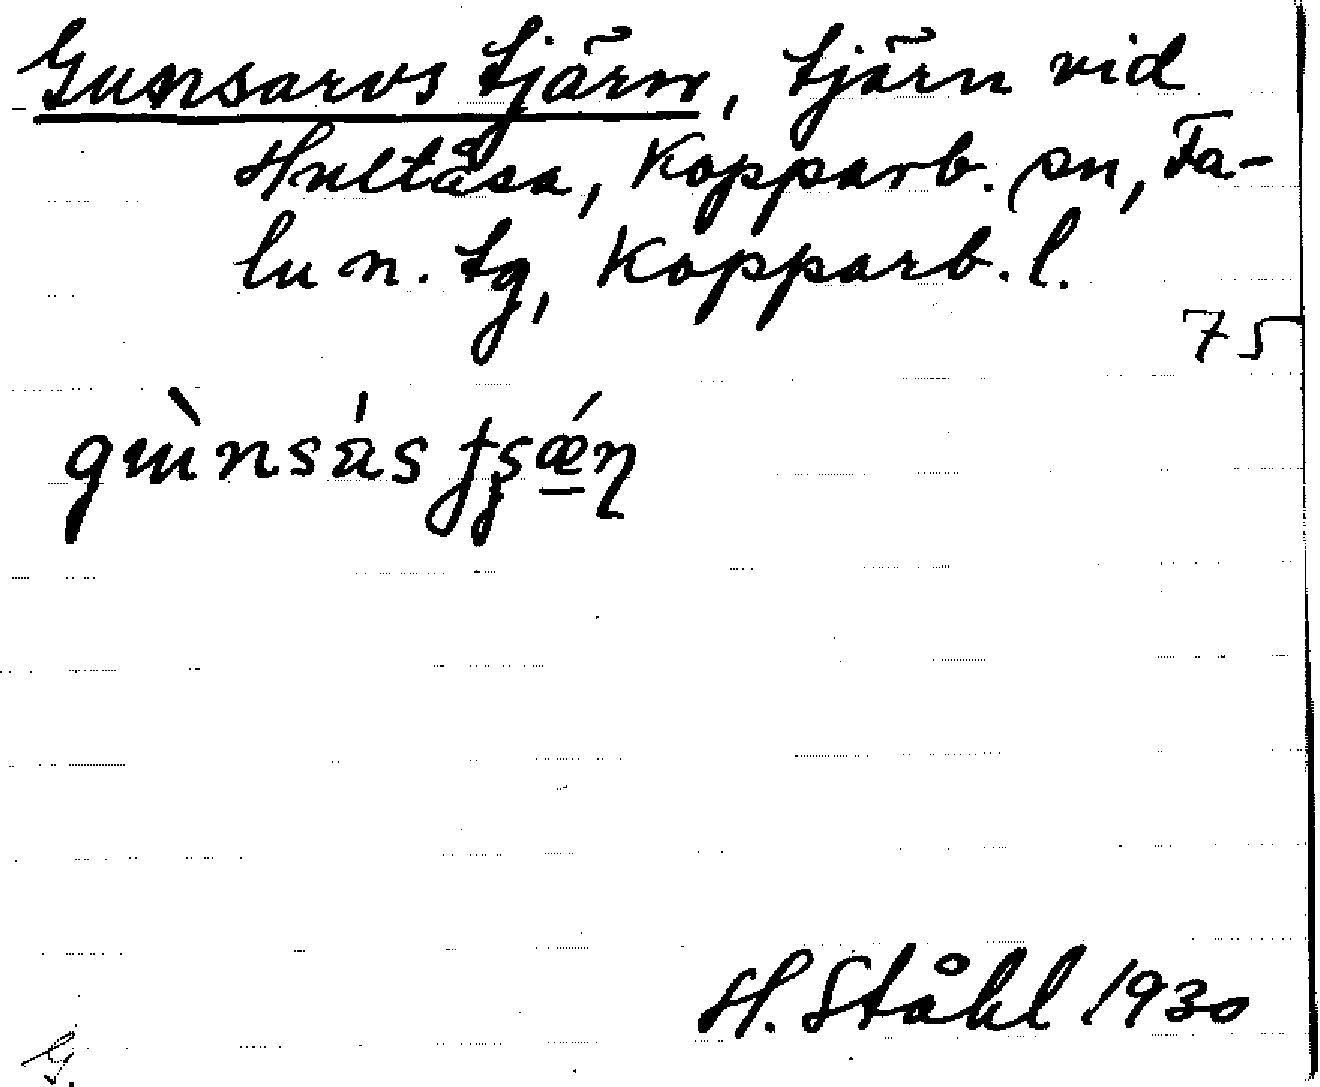 Gunsarvs tjärn, tjärn vid
Hultåsa, Kopparb. sn, Fa-
lu n. tg, Kopparb. l.
75
H. Ståhl 1930
G.